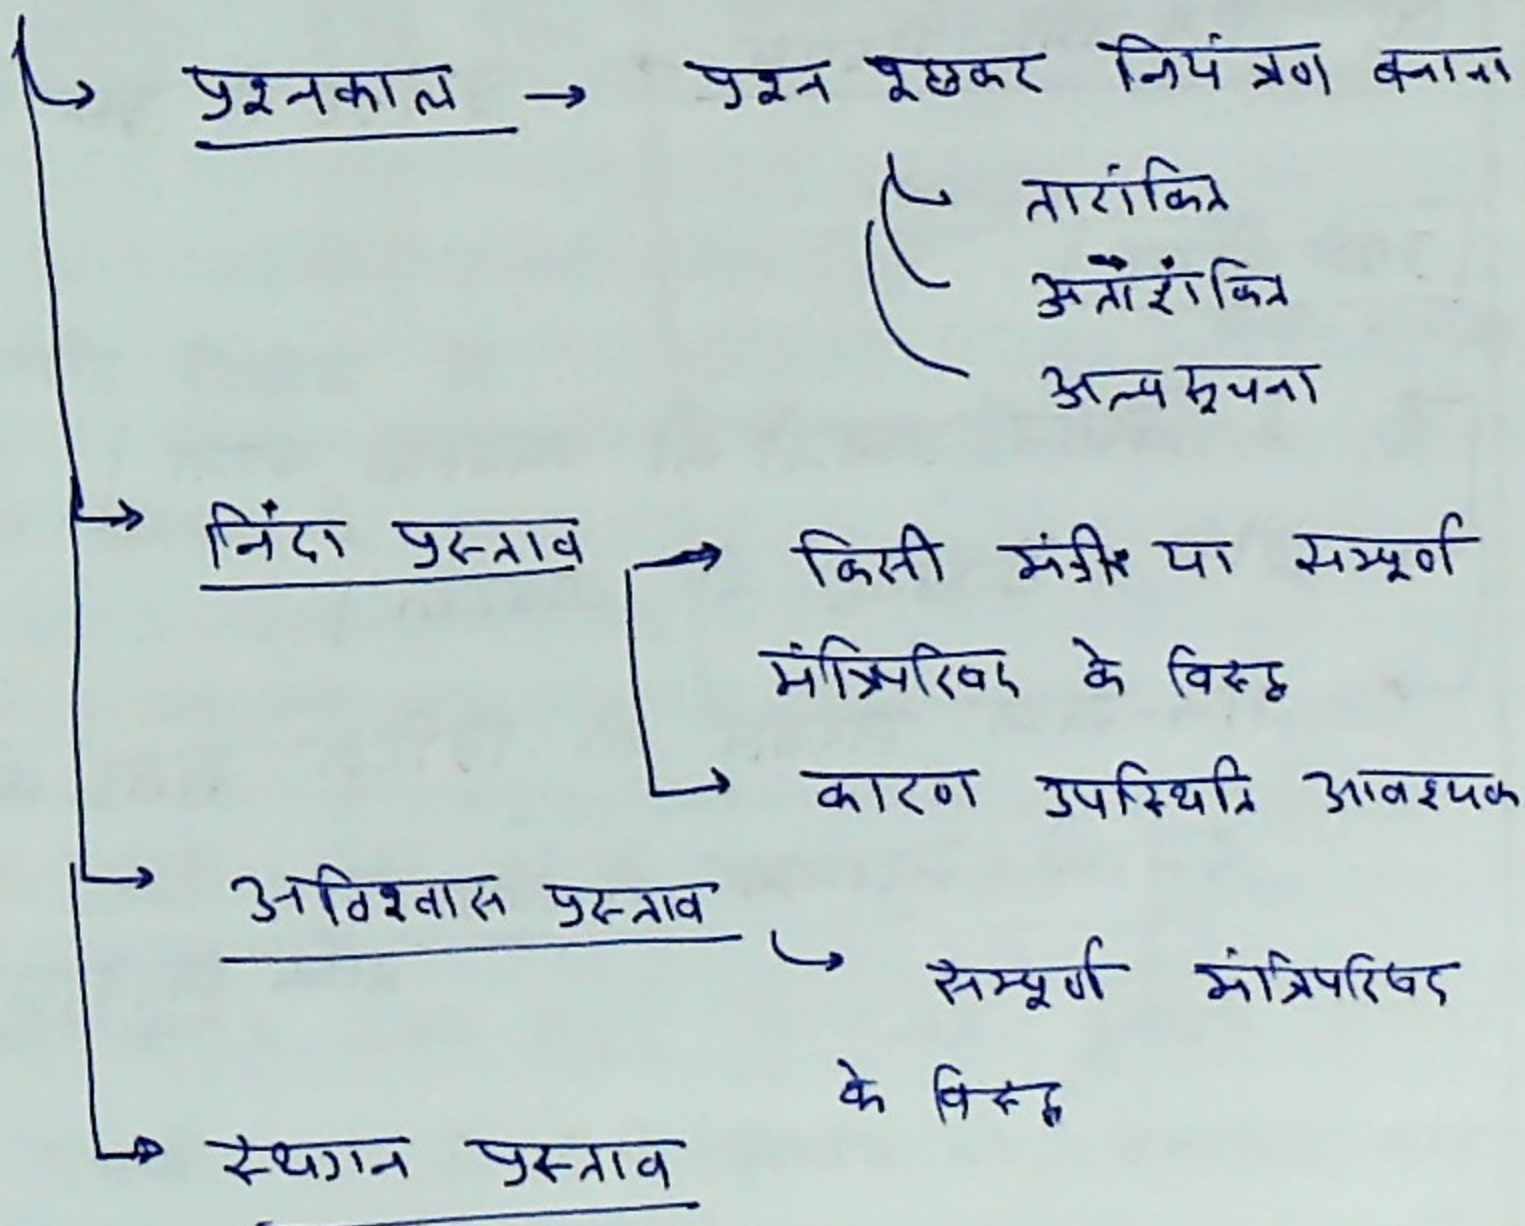 प्रश्नकाल → प्रश्न पूछकर नियंत्रण बनाना
तारांकित
अतारांकित
अल्प सूचना
निंदा प्रस्ताव → किसी मंत्री या सम्पूर्ण
मंत्रिपरिषद के विरुद्ध
कारण उपस्थिति आवश्यक
अविश्वास प्रस्ताव
सम्पूर्ण मंत्रिपरिषद
के विरुद्ध
स्थगन प्रस्ताव